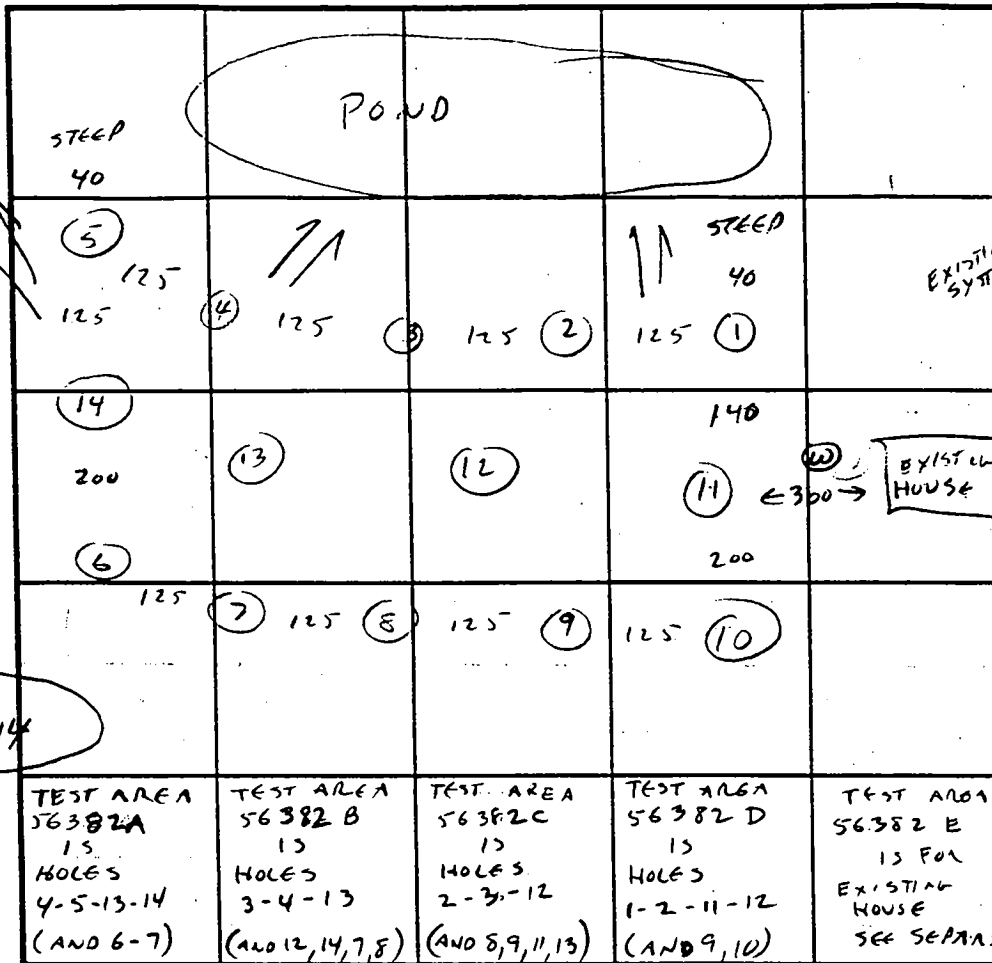 POND
STEEP
40
5
125
125
4
125
3
125
2
125
1
STEEP
40
14
200
6
13
12
140
11
←300→
200
W
HOUSE
125
7
125
8
125
9
125
10
TEST AREA
56382A
IS
HOLES
4-5-13-14
(AND 6-7)
TEST AREA
56382 B
IS
HOLES
3-4-13
(AND 12,14,7,8)
TEST AREA
56382C
IS
HOLES
2-3-12
(AND 8,9,11,13)
TEST AREA
56382 D
IS
HOLES
1-2-11-12
(AND 9,10)
TEST AREA
56382 E
IS FOR
EXISTING
HOUSE
SEE